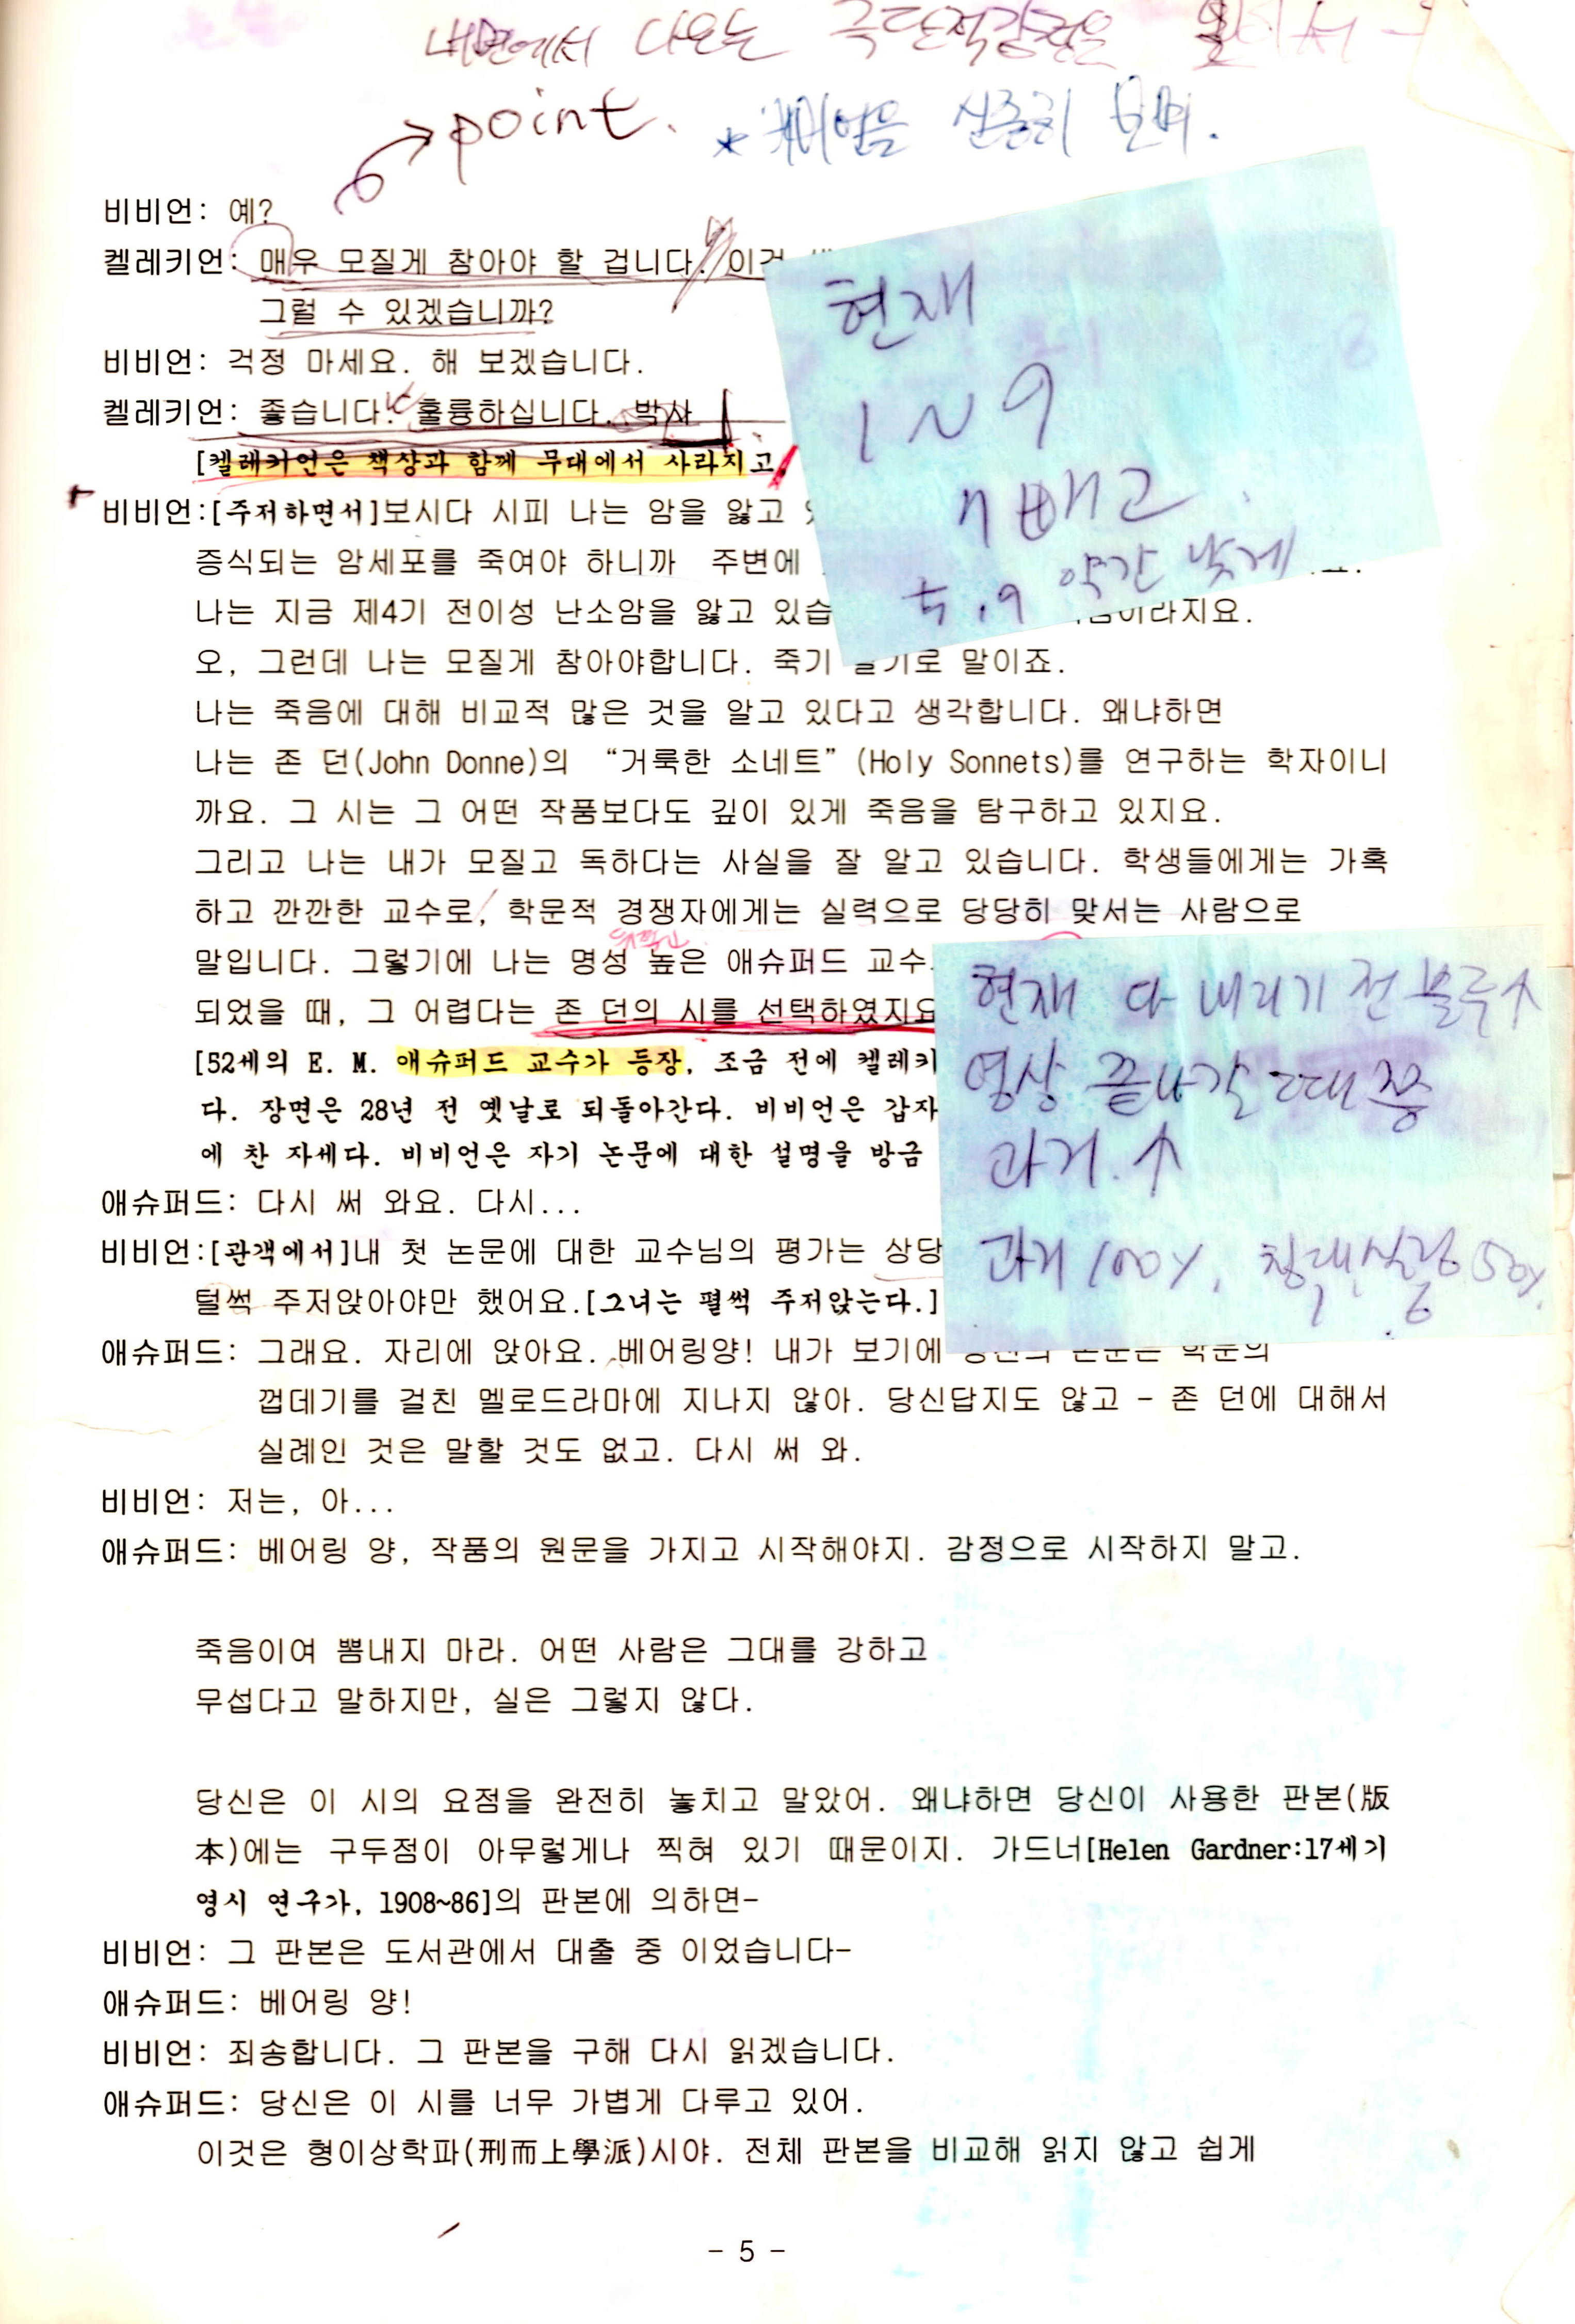 내면에서 나오는 극단적감정을
point. ★ 신중히 보며.
비비언: 예?
켈레키언: 매우 모질게 참아야 할 겁니다. 이건
그럴 수 있겠습니까?
비비언: 걱정 마세요. 해 보겠습니다.
켈레키언: 좋습니다. 훌륭하십니다. 박사
[켈레키언은 책상과 함께 무대에서 사라지고,
비비언:[주저하면서]보시다 시피 나는 암을 앓고
증식되는 암세포를 죽여야 하니까 주변에
나는 지금 제4기 전이성 난소암을 앓고 있습 이라지요.
오, 그런데 나는 모질게 참아야합니다. 죽기 로 말이죠.
현재
1~9
7빼고
5,9 약간 낮게
나는 죽음에 대해 비교적 많은 것을 알고 있다고 생각합니다. 왜냐하면
나는 존 던(John Donne)의 “거룩한 소네트”(Holy Sonnets)를 연구하는 학자이니
까요. 그 시는 그 어떤 작품보다도 깊이 있게 죽음을 탐구하고 있지요.
그리고 나는 내가 모질고 독하다는 사실을 잘 알고 있습니다. 학생들에게는 가혹
하고 깐깐한 교수로, 학문적 경쟁자에게는 실력으로 당당히 맞서는 사람으로
말입니다. 그렇기에 나는 명성 높은 애슈퍼드 교수
되었을 때, 그 어렵다는 존 던의 시를 선택하였지요
[52세의 E. M. 애슈퍼드 교수가 등장, 조금 전에 켈레키
다. 장면은 28년 전 옛날로 되돌아간다. 비비언은 갑자
에 찬 자세다. 비비언은 자기 논문에 대한 설명을 방금
현재 다 내리기 전 블루↑
영상 끝나갈 때쯤
과거 ↑
과거 100%, 침대,실링 50%
애슈퍼드: 다시 써 와요. 다시...
비비언:[관객에서]내 첫 논문에 대한 교수님의 평가는 상당
털썩 주저앉아야만 했어요.[그녀는 펄썩 주저앉는다.]
애슈퍼드: 그래요. 자리에 앉아요. 베어링양! 내가 보기에 당신의 논문은 학문의
껍데기를 걸친 멜로드라마에 지나지 않아. 당신답지도 않고 - 존 던에 대해서
실례인 것은 말할 것도 없고. 다시 써 와.
비비언: 저는, 아...
애슈퍼드: 베어링 양, 작품의 원문을 가지고 시작해야지. 감정으로 시작하지 말고.
죽음이여 뽐내지 마라. 어떤 사람은 그대를 강하고
무섭다고 말하지만, 실은 그렇지 않다.
당신은 이 시의 요점을 완전히 놓치고 말았어. 왜냐하면 당신이 사용한 판본(版
本)에는 구두점이 아무렇게나 찍혀 있기 때문이지. 가드너[Helen Gardner:17세기
영시 연구가, 1908~86]의 판본에 의하면-
비비언: 그 판본은 도서관에서 대출 중 이었습니다-
애슈퍼드: 베어링 양!
비비언: 죄송합니다. 그 판본을 구해 다시 읽겠습니다.
애슈퍼드: 당신은 이 시를 너무 가볍게 다루고 있어.
이것은 형이상학파(刑而上學派)시야. 전체 판본을 비교해 읽지 않고 쉽게
- 5 -